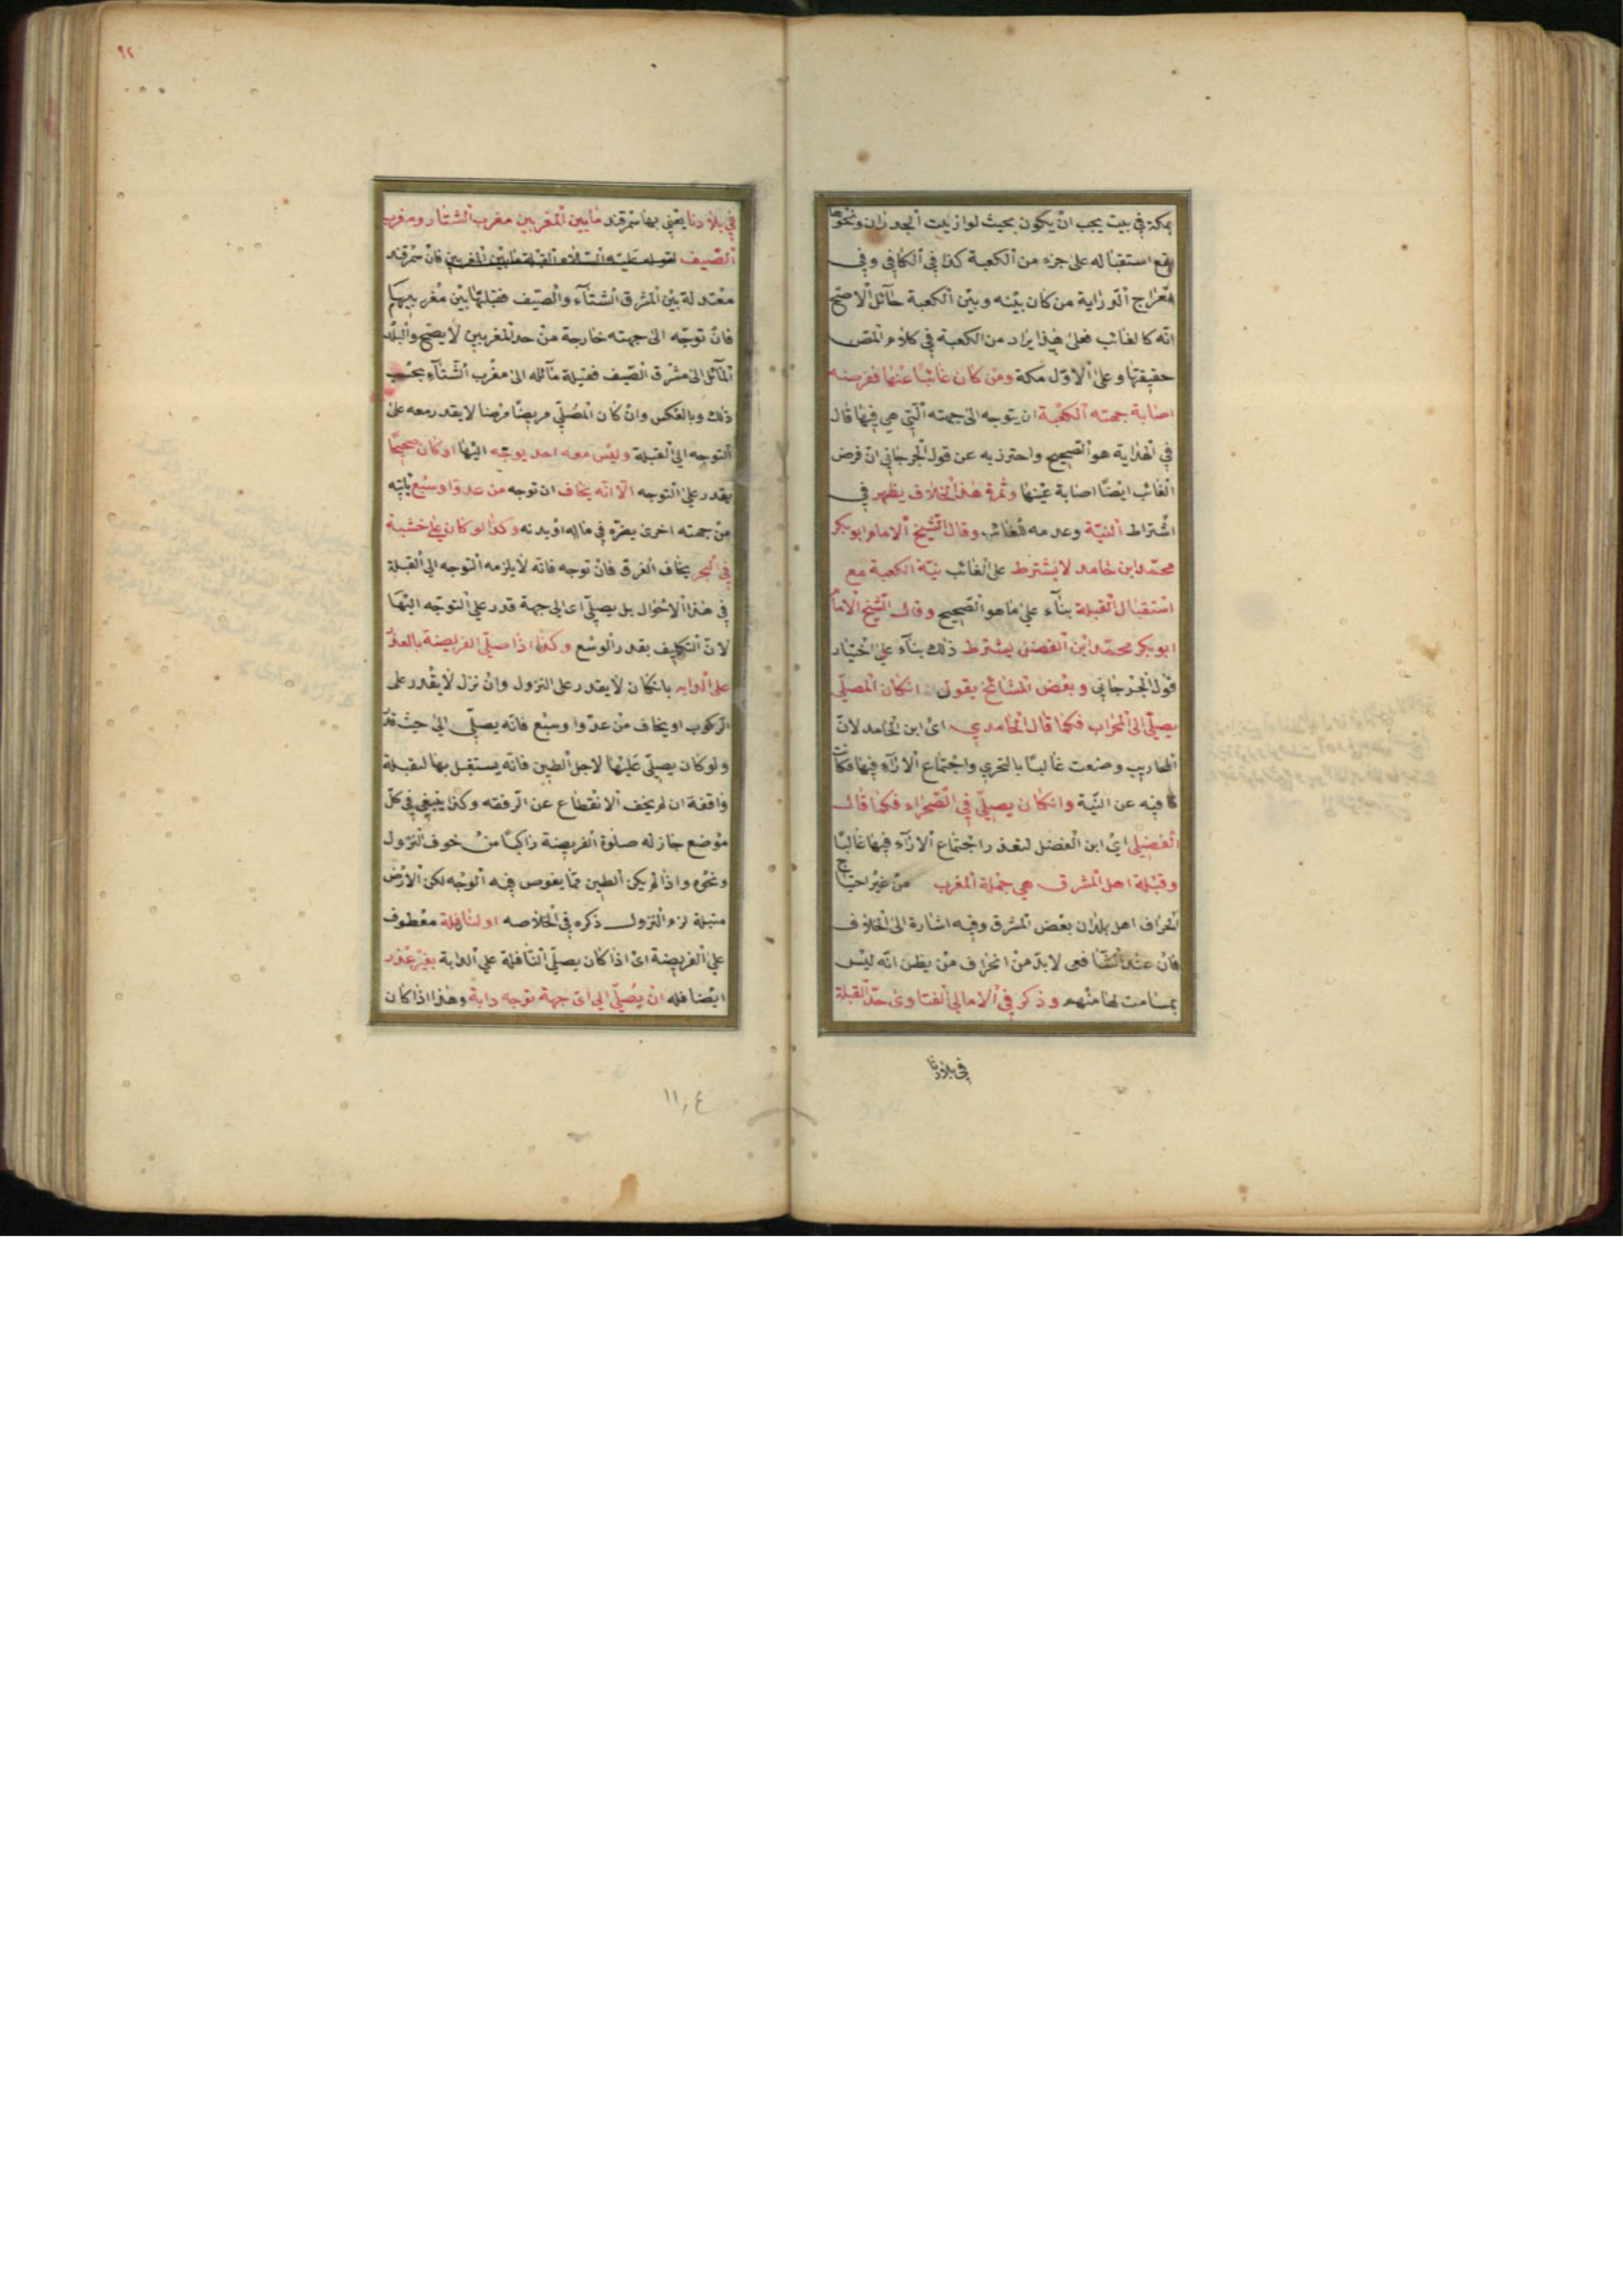 بمكة في بيت يجب ان يكون بحيث لو ازيلت الجدران ونحوها
يقع استقباله على جزء من الكعبة كذا في الكافي وفي
معراج الدراية من كان بينه وبين الكعبة حآئل الاصح
انه كالغائب فعلى هذا يراد من الكعبة في كلام المص
حقيقتها وعلى الاول مكة ومن كان غائبا عنها ففرضه
اصابة جهته الكعبة ان يتوجه الى جهته التي هي فيها قال
في الهداية هو الصحيح واحترز به عن قول الجرجاني ان فرض
الغائب ايضا اصابة عينها وثمرة هذا الخلاف يظهر في
اشتراط النية وعدمه للغائب وقال الشيخ الامام ابو بكر
محمد ابن حامد لا يشترط على الغائب نية الكعبة مع
استقبال القبلة بنآء على ما هو الصحيح وقال الشيخ الامام
ابو بكر محمد ابن الفضل يشترط ذلك بنآء على اختيار
قول الجرجاني وبعض المشائخ يقول انكان المصلى
يصلى الى المحراب فكما قال الحامدي اى ابن الحامد لان
المحاريب وضعت غالبا بالتحري واجتماع الارآء فيها فكانت
كافيه عن النية وانكان يصلى في الصحراء فكما قال
الفضيلى اى ابن الفضل لتعذر اجتماع الارآء فيها غالبا
وقبلة اهل المشرق هي جملة المغرب من غير احتياج
انحراف اهل بلدان بعض المشرق وفيه اشارة الى الخلاف
فان عند الشافعى لابد من انحراف من يظن انه ليس
بمسامت لها منهم وذكر في الامالي الفتاوى حد القبلة
في بلادنا
٩٢
في بلادنا يعني بها سمرقند ما بين المغربين مغرب الشتاء ومغرب
الصيف لقوله عليه السلام القبلة ما بين المغربين فان سمرقند
معتدلة بين المشرق الشتآء والصيف فقبلتها بين مغربيهما
فان توجه الى جهته خارجة من حد المغربين لا يصح والبلد
المآئل الى مشرق الصيف فقبلة مآئله الى مغرب الشتآء بحسب
ذلك وبالعكس وان كان المصلى مريضا مرضا لا يقدر معه على
التوجه الى القبلة وليس معه احد يوجه اليها او كان صحيحا
يقدر على التوجه الا انه يخاف ان توجه من عدو او سبع ياتيه
من جهته اخرى يضره في ماله او بدنه وكذا لو كان على خشبة
في البحر يخاف الغرق فان توجه فانه لا يلزمه التوجه الى القبلة
في هذا الاحوال بل يصلى اى الى جهة قدر على التوجه اليها
لان التكليف بقدر الوسع وكذا اذا صلى الفريضة بالعذر
على الدابه بانكان لا يقدر على النزول وان نزل لا يقدر على
الركوب او يخاف من عدو او سبع فانه يصلى الى حيث قدر
ولو كان يصلى عليها لاجل الطين فانه يستقبل بها القبلة
واقفة ان لم يخف الانقطاع عن الرفقه وكذا ينبغي في كل
موضع جاز له صلوة الفريضة راكبا من خوف النزول
ونحوه واذا لم يكن الطين مما يغوص فيه الوجه لكن الارض
مبتلة لزم النزول ذكره في الخلاصه او لنافلة معطوف
على الفريضة اى اذا كان يصلى النافلة على الدابة بغير عذر
ايضا فله ان يصلى الى اى جهة توجه دابة وهذا اذا كان